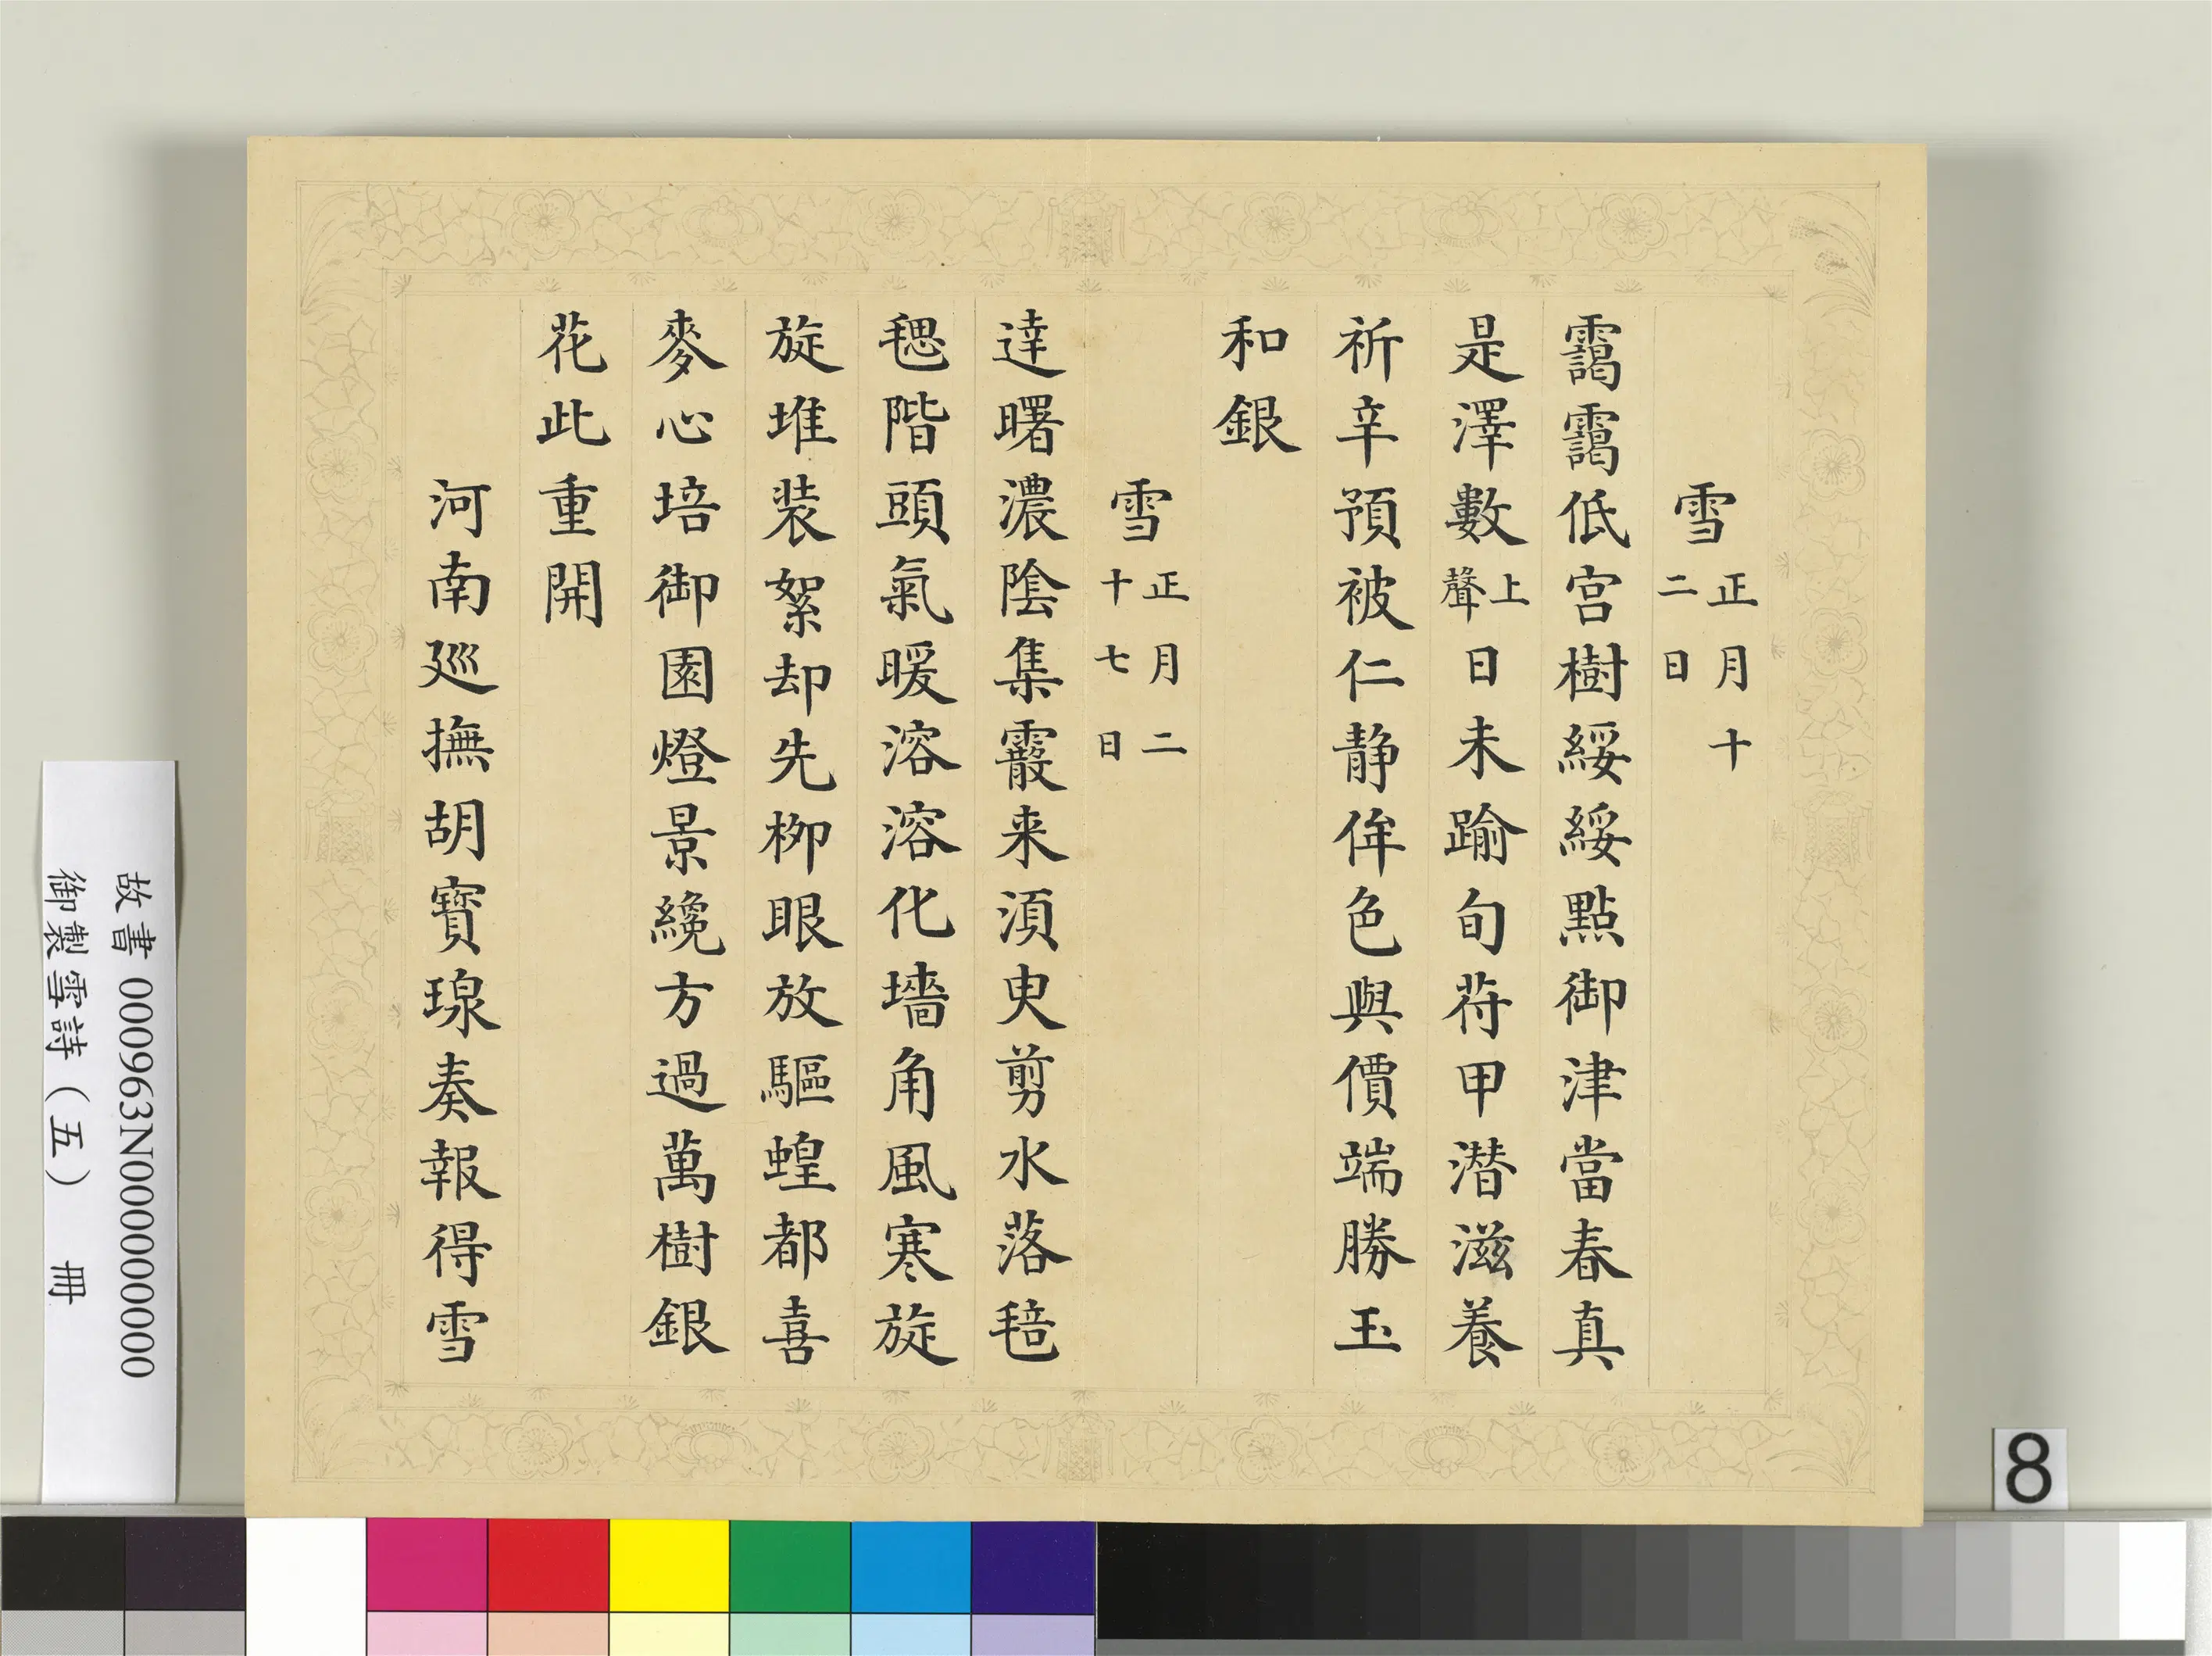 雪正月十二日
靄靄低宮樹綏綏點御津當春真
是澤數上聲日未踰旬荮甲潛滋養
祈辛預被仁静侔色與價端勝玉
和銀
雪正月二十七日
達曙濃陰集霰来湏臾剪水落毰
毸階頭氣暖溶溶化墻角風寒旋
旋堆装絮却先栁眼放驅蝗都喜
麥心培御園燈景纔方過萬樹銀
花此重開
河南廵撫胡寶瑔奏報得雪
故書 000963N000000000
御製雪詩（五） 冊
8